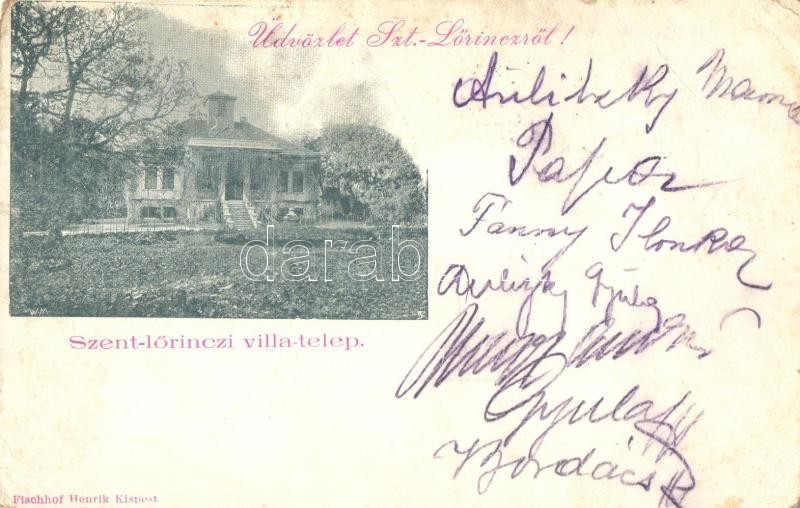 Üdvözlet Szt.-Lőrinczről!
Aulitzky Mama
Papa
Fanny Ilonka
Gyula
Gyula
Bordács
darab
WM 5
Szent-lőrinczi villa-telep.
Fischhof Henrik Kispest